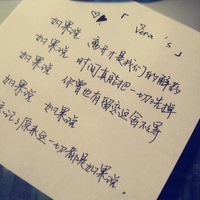 「 Sara 's 」
如果说 离开才是我们的解药
如果说 时间真能把一切洗掉
如果说 你曾也有留恋这留不
如果说 如果说
忘记了原来这一切都是如果说。